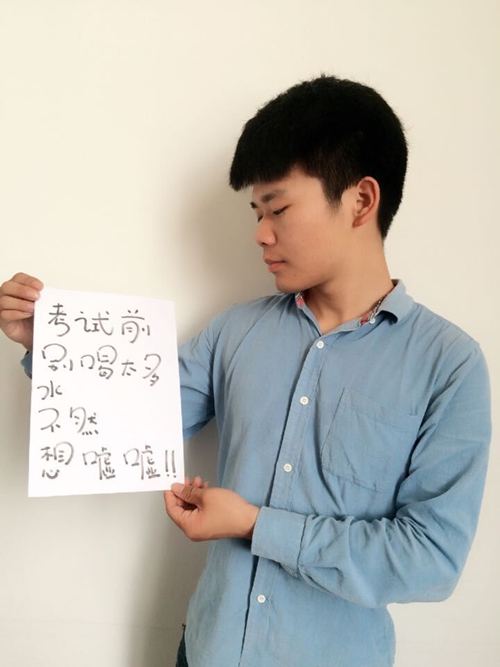 考试前
别唱太多
水
不然
想嘘嘘!!